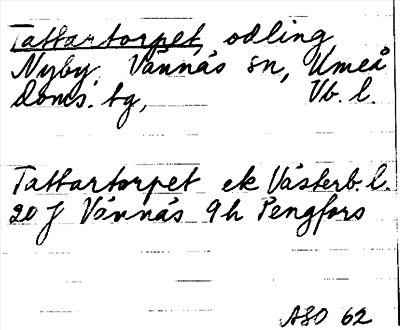 Tattartorpet, odling
Nyby, Vännäs sn, Umeå
doms. tg, Vb. l.
Tattartorpet ek Västerb. l.
20 J Vännäs 9h Pengfors
ASO 62